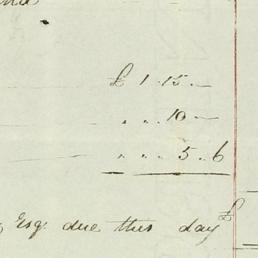 £ 1 .. 15 .. —
" .. 10 .. —
" .. 5 .. 6
Esq. due this day £